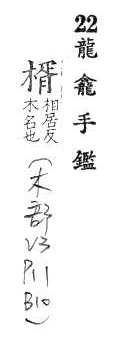 22 龍龕手鑑
楈 相居反
木名也
(木部 V3 P11 B10)